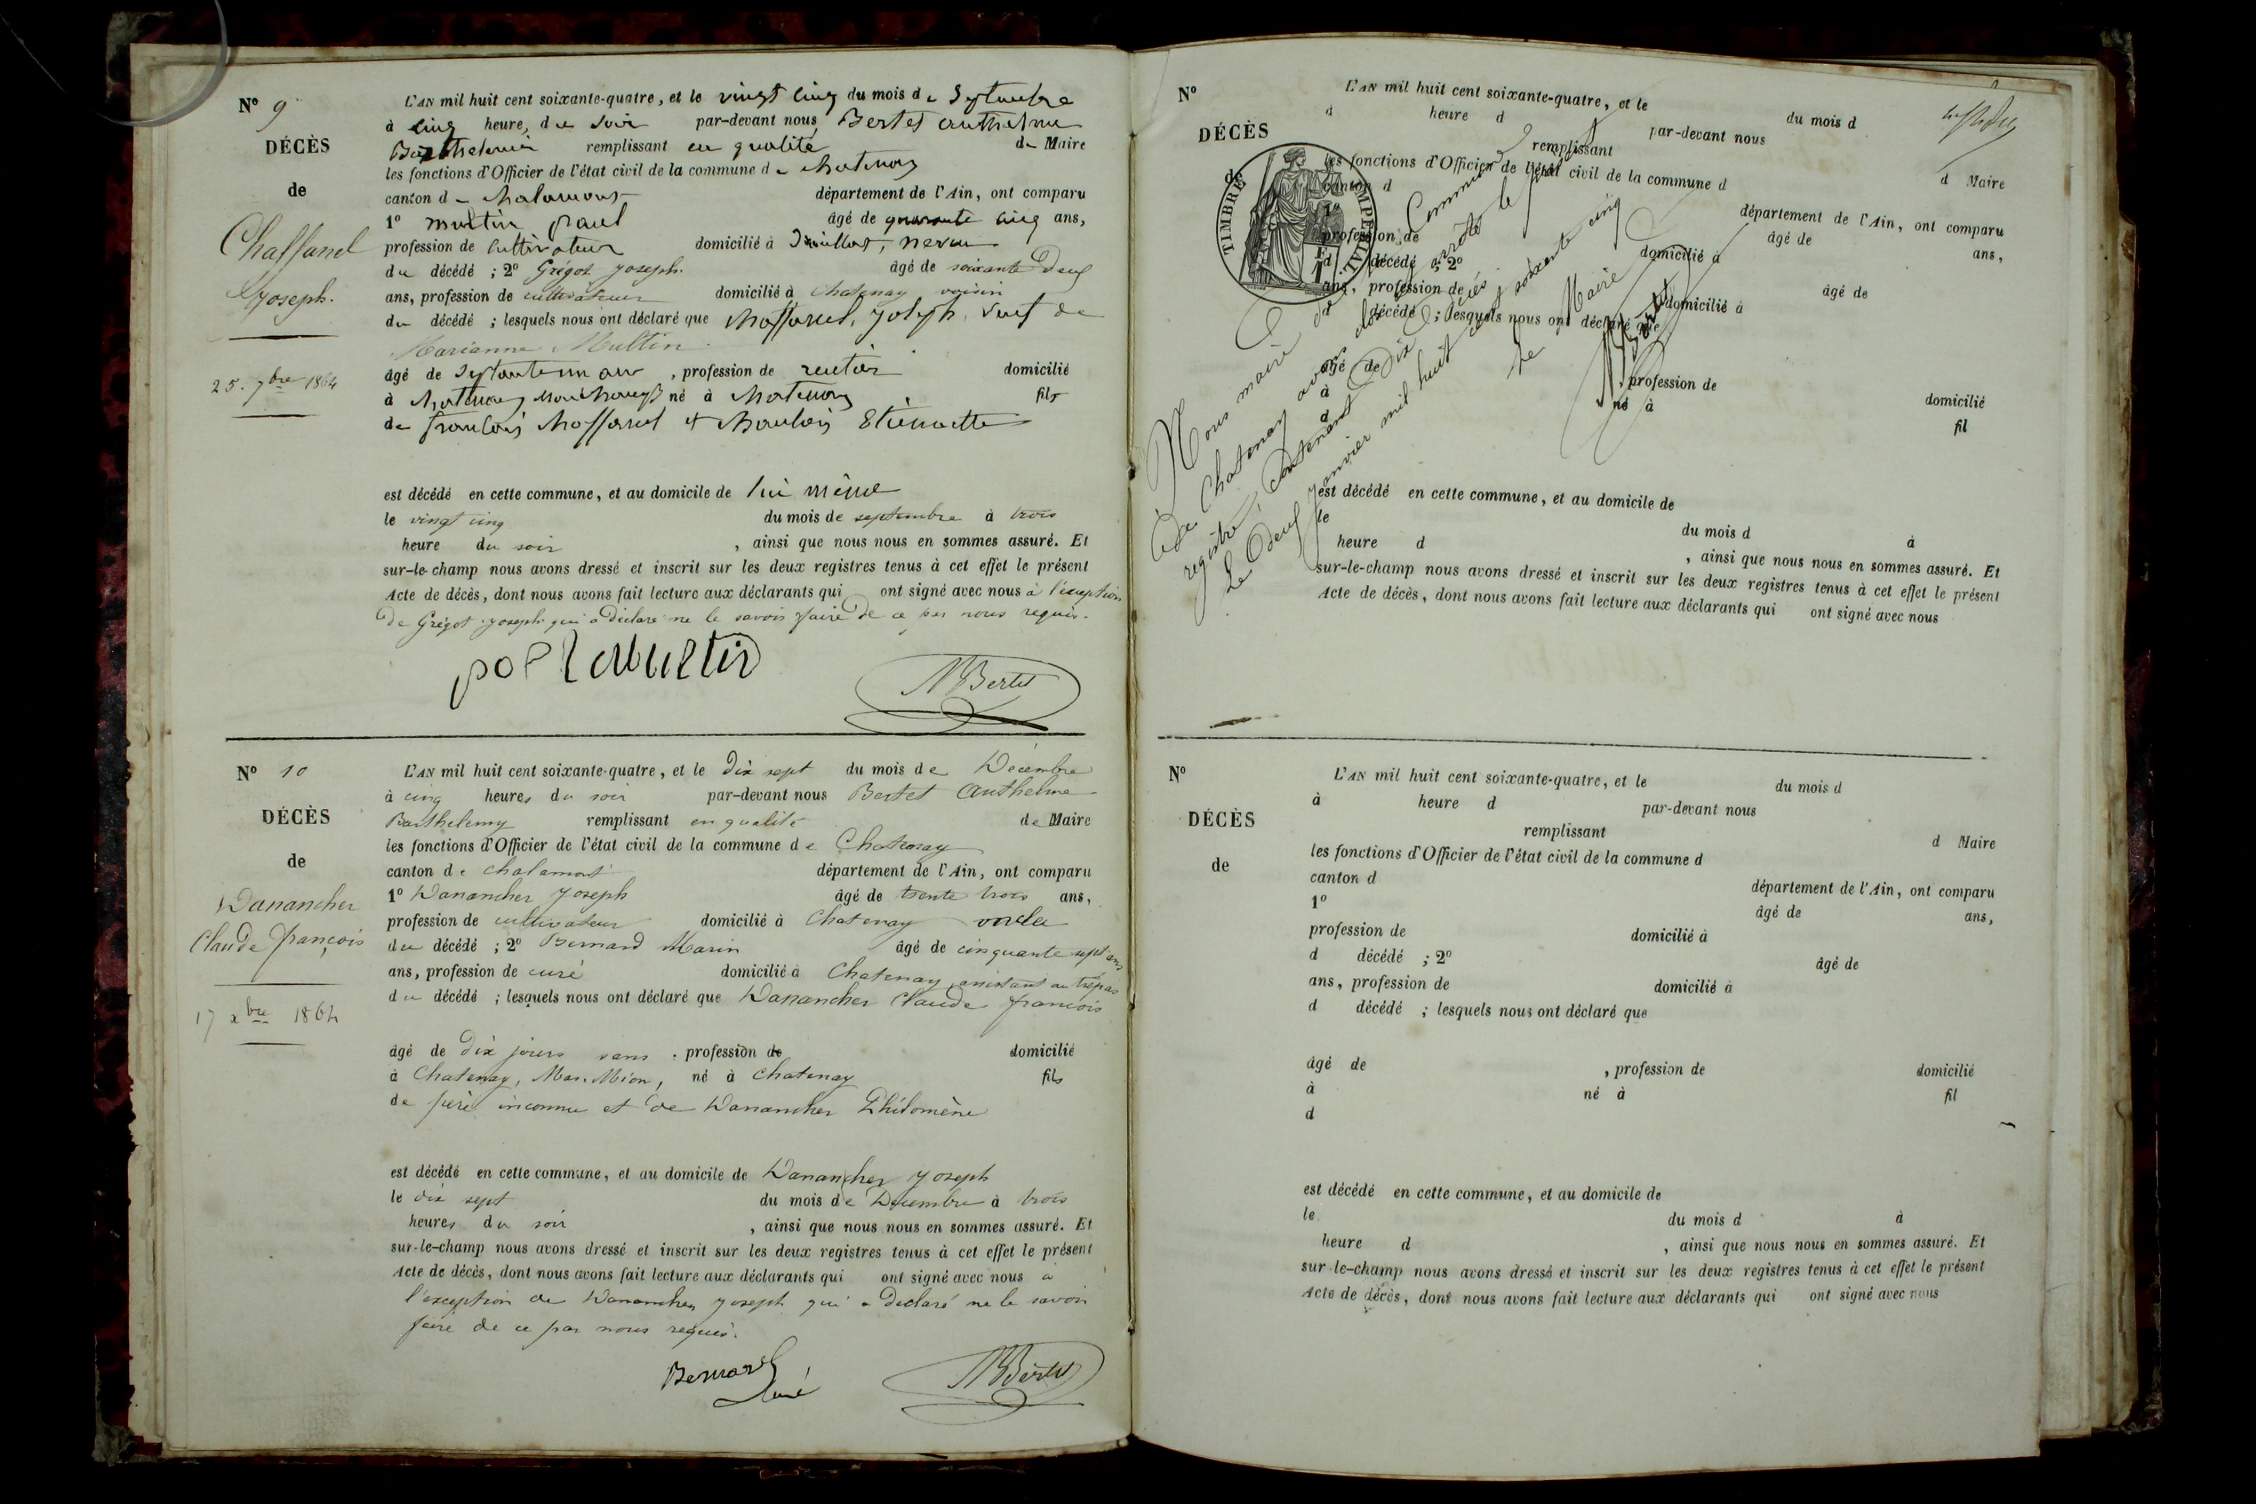 N° 9
DÉCÈS
de
Chaffanel
Joseph.
25. 7bre 1864
L'AN mil huit cent soixante-quatre, et le vingt cinq du mois de Septembre
à cinq heure, du soir par-devant nous Bertet Anthelme
Barthelemi remplissant en qualité de Maire
les fonctions d'Officier de l'état civil de la commune de Chatenay
canton de Chalamont département de l'Ain, ont comparu
1° multin paul âgé de quarante cinq ans,
profession de cultivateur domicilié à neveu
du décédé ; 2° Grégot Joseph. âgé de soixante Deux
ans, profession de cultivateur domicilié à Chatenay voisin
du décédé ; lesquels nous ont déclaré que Chaffanel, Joseph, veuf de
Marianne Multin.
âgé de Septante un ans, profession de rentier domicilié
à Chatenay né à Chatenay fils
de francois Chaffanel et Etiennette
est décédé en cette commune, et au domicile de lui même
le vingt cinq du mois de septembre à trois
heure du soir , ainsi que nous nous en sommes assuré. Et
sur-le-champ nous avons dressé et inscrit sur les deux registres tenus à cet effet le présent
Acte de décès, dont nous avons fait lecture aux déclarants qui ont signé avec nous à l'éxception
De Grégot Joseph qui a Déclaré ne le savoir faire De ce par nous requis.
Bertet
N° 10
DÉCÈS
de
Danancher
Claude françois
17 xbre 1864
L'AN mil huit cent soixante-quatre, et le Dix sept du mois de Décembre
à cinq heures du soir par-devant nous Bertet Anthelme
Barthelemy remplissant en qualité de Maire
les fonctions d'Officier de l'état civil de la commune de Chatenay
canton de Chalamont département de l'Ain, ont comparu
1° Danancher Joseph âgé de trente trois ans,
profession de cultivateur domicilié à Chatenay oncle
du décédé ; 2° Bernard Marin âgé de cinquante sept ans
ans, profession de curé domicilié à Chatenay, assistant au trépas
du décédé ; lesquels nous ont déclaré que Danancher Claude francois
âgé de Dix jours sans profession de domicilié
à Chatenay, Mas. Mion, né à Chatenay fils
de père inconnu et de Danancher Philomène
est décédé en cette commune, et au domicile de Danancher Joseph
le dix sept du mois de Décembre à trois
heures du soir , ainsi que nous nous en sommes assuré. Et
sur-le-champ nous avons dressé et inscrit sur les deux registres tenus à cet effet le présent
Acte de décès, dont nous avons fait lecture aux déclarants qui ont signé avec nous à
l'exception de Danancher Joseph qui a Déclaré ne le savoir
faire de ce par nous requis.
Bernard
curé
Bertet
N°
DÉCÈS
de
TIMBRE IMPÉRIAL
L'AN mil huit cent soixante-quatre, et le du mois d
à heure d par-devant nous
remplissant d Maire
les fonctions d'Officier de l'état civil de la commune d
canton d département de l'Ain, ont comparu
1° âgé de ans,
profession de domicilié à
d décédé ; 2° âgé de
ans, profession de domicilié à
d décédé ; lesquels nous ont déclaré que
âgé de , profession de domicilié
à né à fil
d
Nous maire de la Commune
de Chatenay avons clos et arrêté le présent
registre, contenant Dix Décès
Le Deux Janvier mil huit cent soixante cinq
Le Maire
Bertet
est décédé en cette commune, et au domicile de
le du mois d à
heure d , ainsi que nous nous en sommes assuré. Et
sur-le-champ nous avons dressé et inscrit sur les deux registres tenus à cet effet le présent
Acte de décès, dont nous avons fait lecture aux déclarants qui ont signé avec nous
N°
DÉCÈS
de
L'AN mil huit cent soixante-quatre, et le du mois d
à heure d par-devant nous
remplissant d Maire
les fonctions d'Officier de l'état civil de la commune d
canton d département de l'Ain, ont comparu
1° âgé de ans,
profession de domicilié à
d décédé ; 2° âgé de
ans, profession de domicilié à
d décédé ; lesquels nous ont déclaré que
âgé de , profession de domicilié
à né à fil
d
est décédé en cette commune, et au domicile de
le du mois d à
heure d , ainsi que nous nous en sommes assuré. Et
sur-le-champ nous avons dressé et inscrit sur les deux registres tenus à cet effet le présent
Acte de décès, dont nous avons fait lecture aux déclarants qui ont signé avec nous